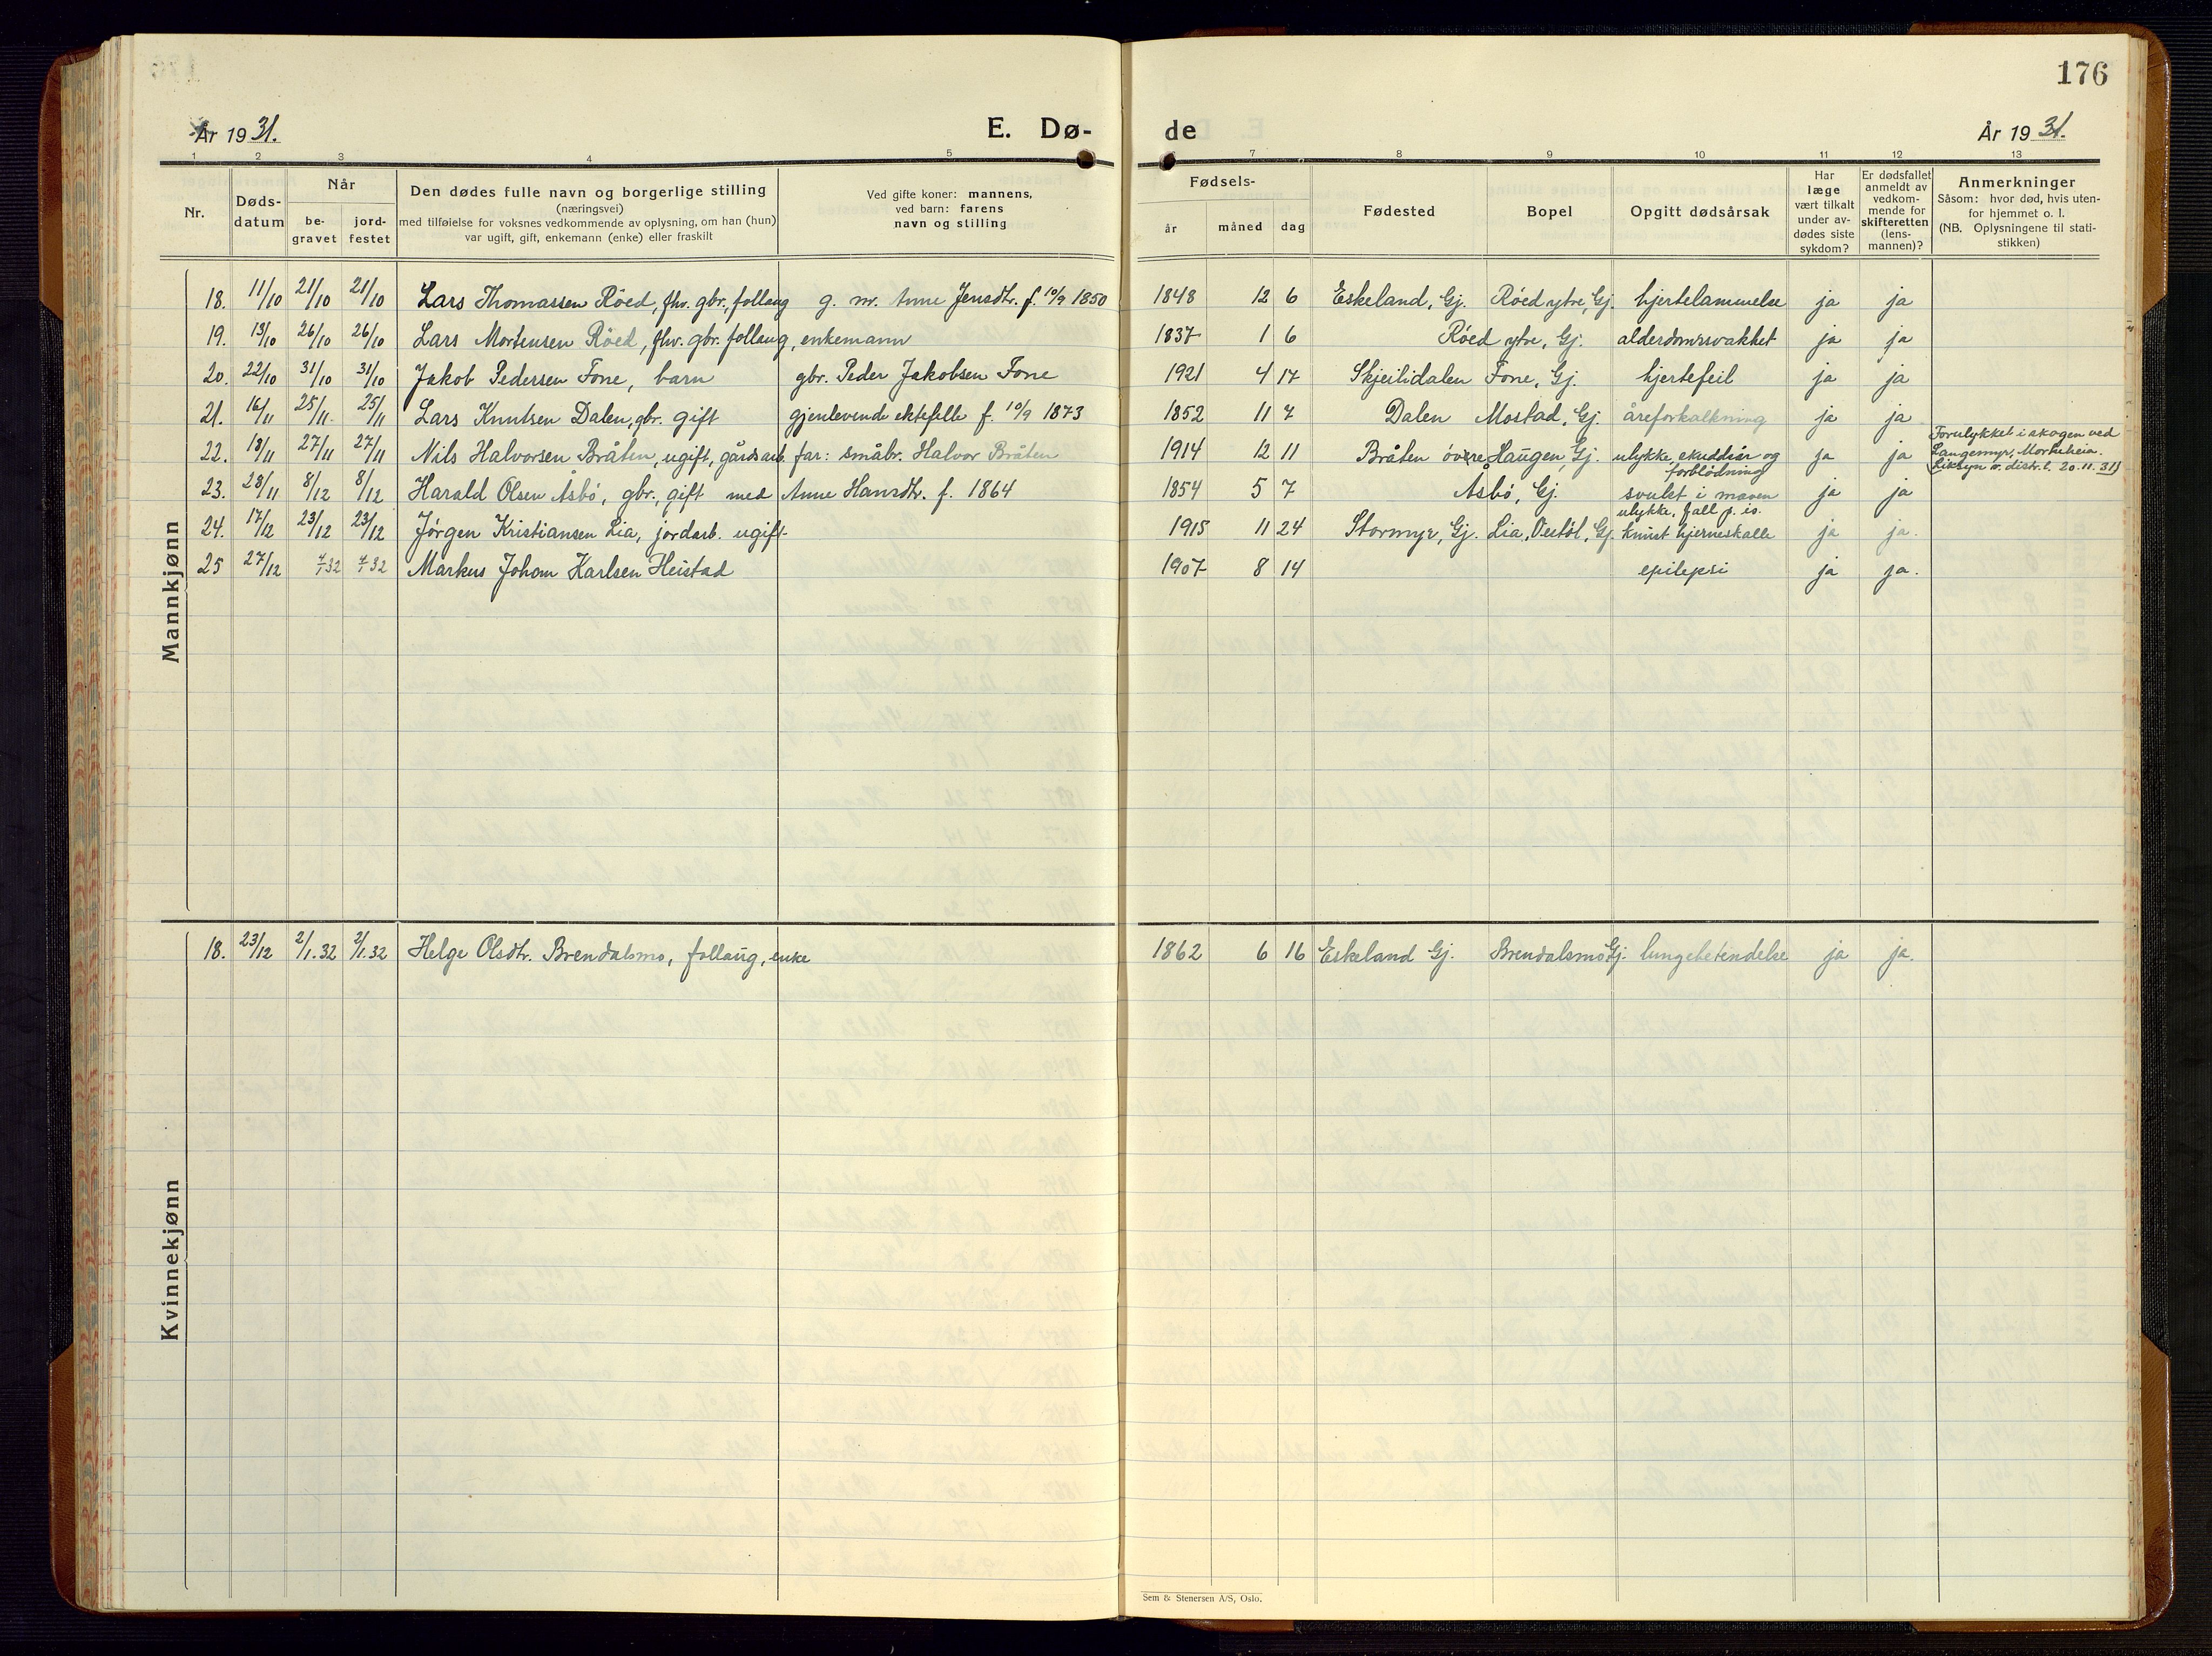 176
År 1931.
E. Dø-
de
År 1931.
1 2 3 4 5 7 8 9 10 11 12 13
Nr.
Døds-
datum
Når
be-
gravet
jord-
festet
Den dødes fulle navn og borgerlige stilling
(næringsvei)
med tilføielse for voksnes vedkommende av oplysning, om han (hun)
var ugift, gift, enkemann (enke) eller fraskilt
Ved gifte koner: mannens,
ved barn: farens
navn og stilling
Fødsels-
år måned dag
Fødested
Bopel
Opgitt dødsårsak
Har
læge
vært tilkalt
under av-
dødes siste
sykdom?
Er dødsfallet
anmeldt av
vedkom-
mende for
skifteretten
(lens-
mannen)?
Anmerkninger
Såsom: hvor død, hvis uten-
for hjemmet o. l.
(NB. Oplysningene til stati-
stikken)
Mannkjønn
18. 11/10 21/10 21/10 Lars Thomassen Röed, fhv. gbr., follaug g. m. Anne Jensdtr. f. 10/9 1850 1848 12 6 Eskeland, Gj. Röed ytre, Gj. hjertelammelse ja ja
19. 13/10 26/10 26/10 Lars Mortensen Röed, fhv. gbr. follaug, enkemann 1837 1 6 Röed ytre, Gj. alderdomssvakhet ja ja
20. 22/10 31/10 31/10 Jakob Pedersen Fone, barn gbr. Peder Jakobsen Fone 1921 4 17 Skjeilidalen Fone, Gj. hjertefeil ja ja
21. 16/11 25/11. 25/11 Lars Knutsen Dalen, gbr. gift gjenlevende ektefelle f. 10/9 1873 1852 11 7 Dalen Mostad, Gj. åreforkalkning ja ja
22. 18/11 27/11 27/11 Nils Halvorsen Bråten, ugift, gårdsarb. far: småbr. Halvor Bråten 1914 12 11 Bråten övre Haugen, Gj. ulykke, skuddsår og
forblödning ja ja
Forulykket i skogen ved
Langemyr, Morkeheia.
Liksyn v. distr.l. 20.11.31)
23. 28/11 8/12 8/12 Harald Olsen Åsbö, gbr., gift med Anne Hansdtr. f. 1864 1854 5 7 Åsbö, Gj. svulst i maven ja ja
24. 17/12 23/12 23/12 Jörgen Kristiansen Lia, jordarb. ugift. 1915 11 24 Stormyr, Gj. Lia, Gj. ulykke, fall p. is.
knust hjerneskalle ja ja.
25 27/12 Markus Johan Karlsen Heistad 1907 8 14 epilepsi ja ja.
Kvinnekjønn
18. 23/12 2/1.32 2/1.32 Helge Olsdtr. Brendalsmo, follaug, enke 1862 6 16 Eskeland Gj. Brendalsmo Gj. lungebetendelse ja ja.
Sem & Stenersen A/S, Oslo.